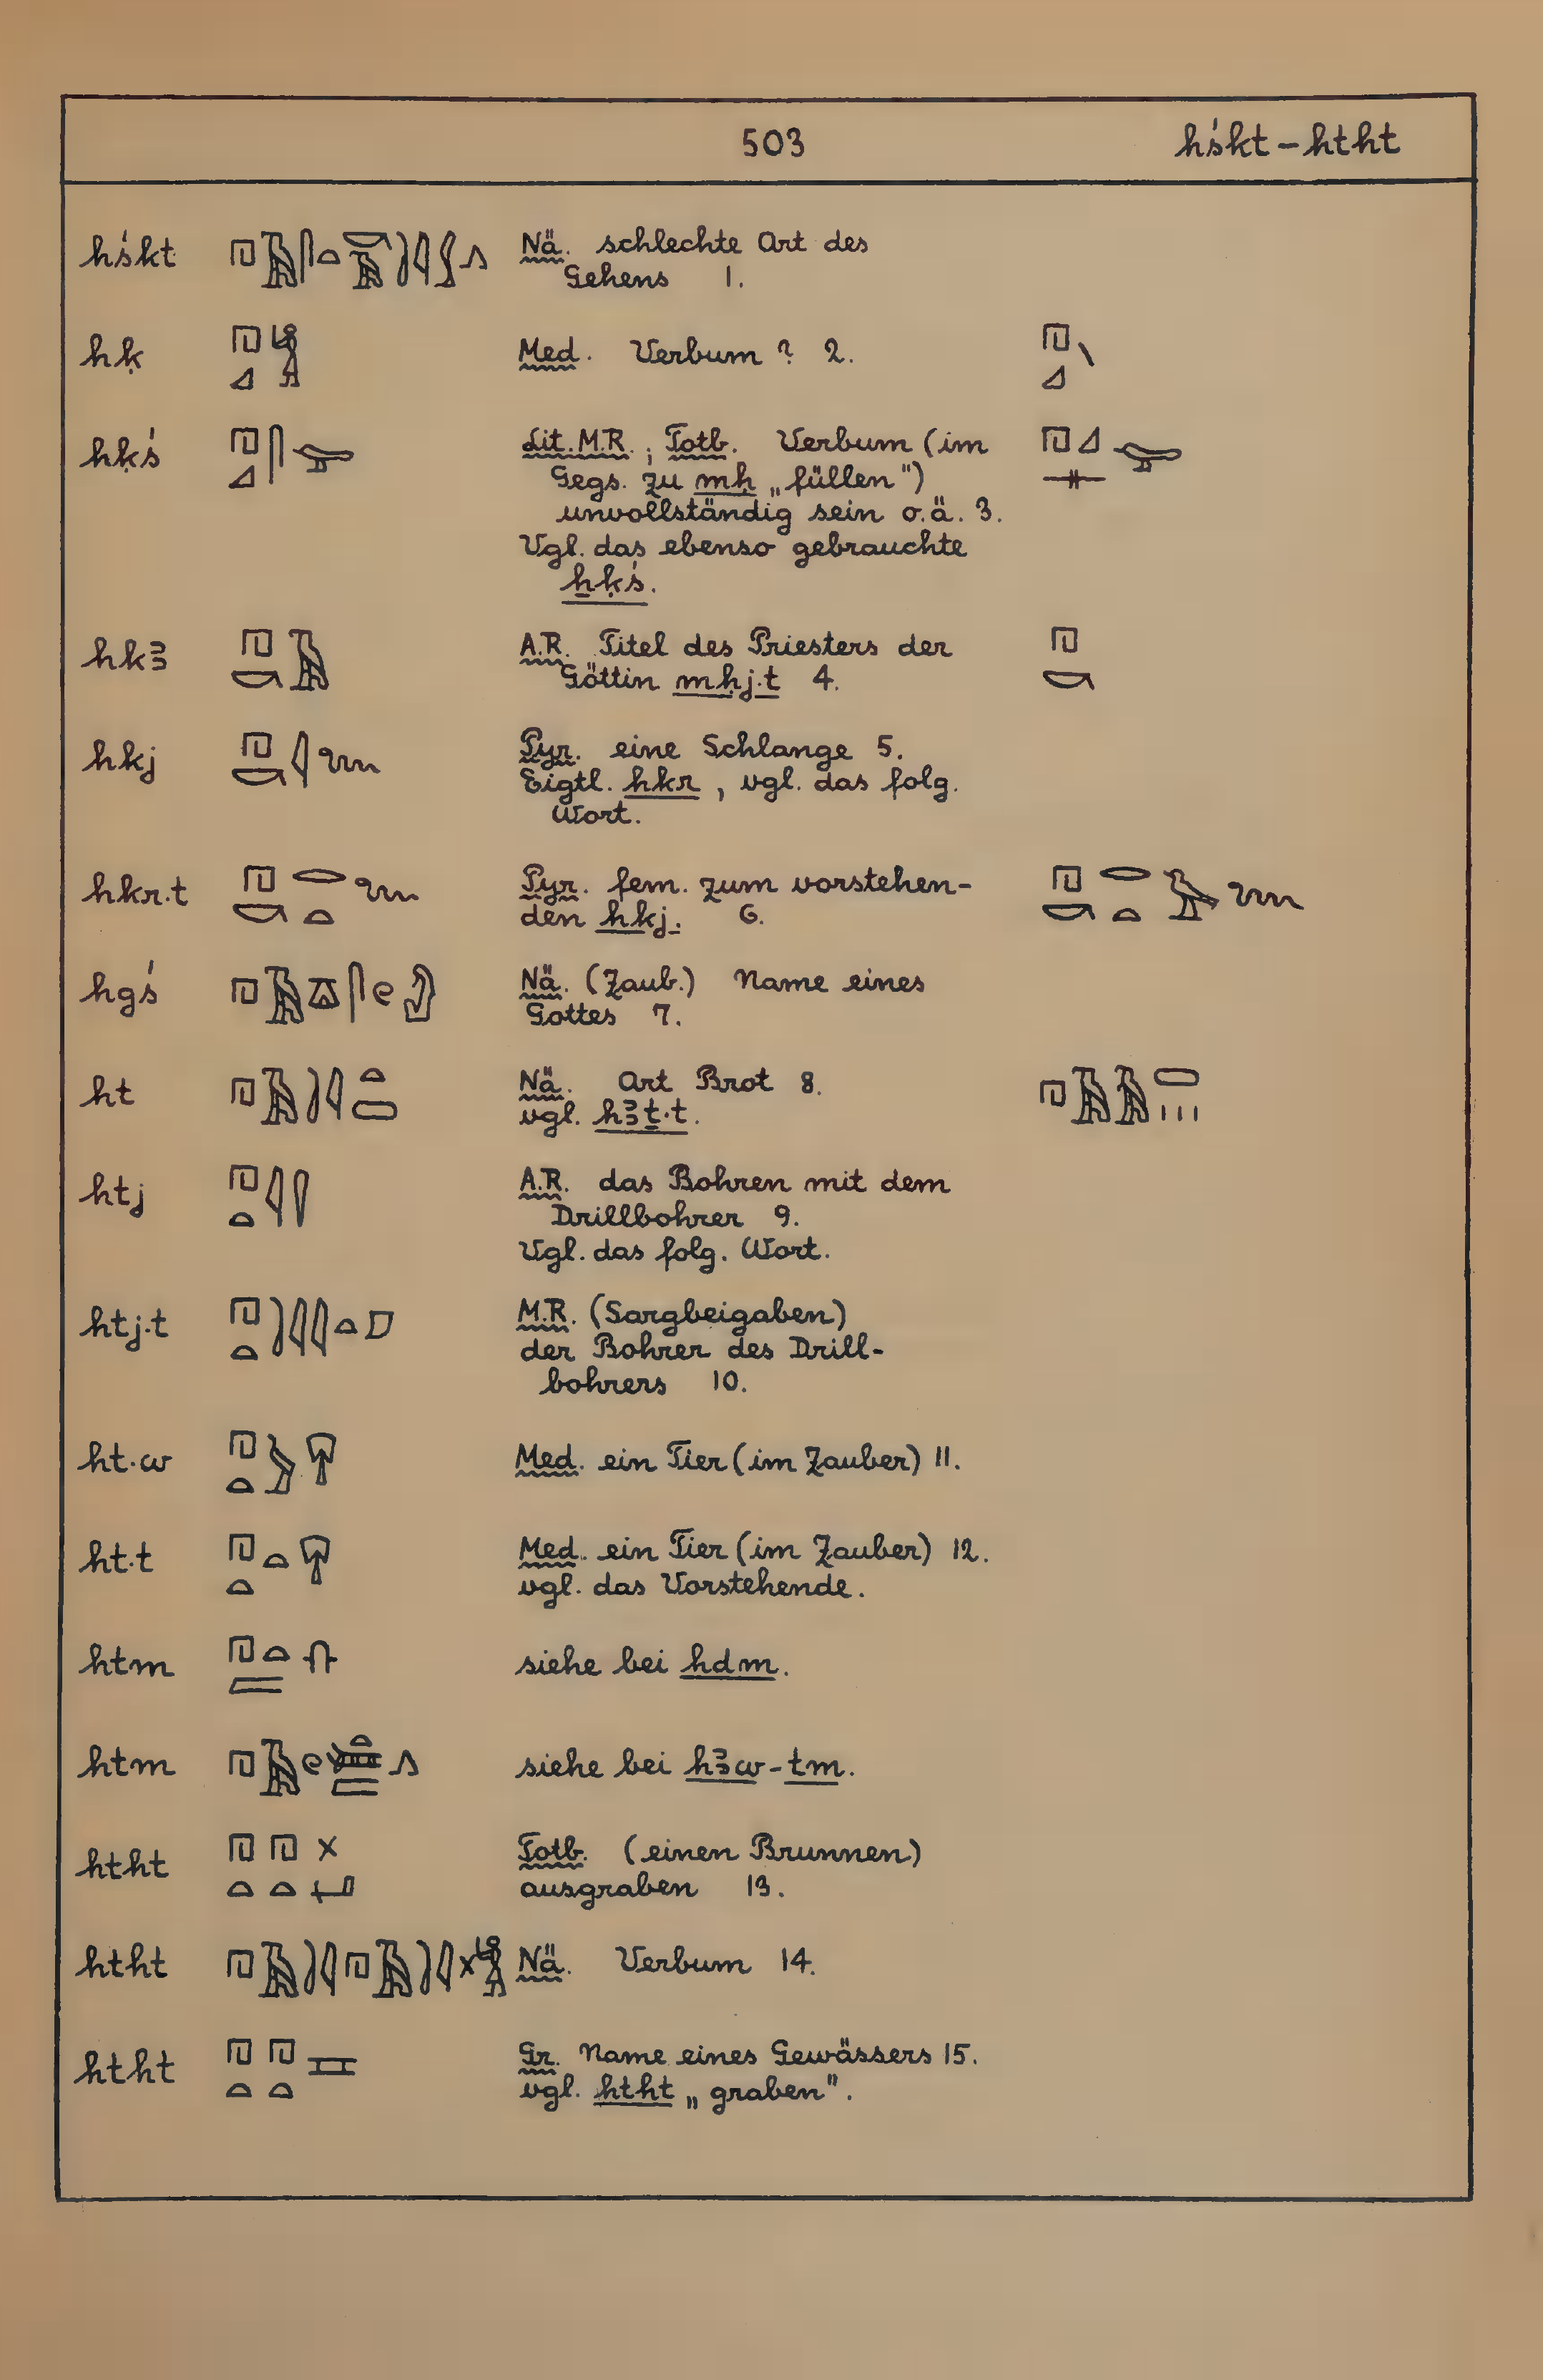 503 hśkt – htht
hśkt Nä. schlechte Art des
Gehens 1.
hḳ Med. Verbum ? 2.
hḳś Lit. M.R.; Totb. Verbum (im
Gegs. zu mḥ „füllen")
unvollständig sein o.ä. 3.
Vgl. das ebenso gebrauchte
ẖḳś.
hkꜣ A.R. Titel des Priesters der
Göttin mḥj.t 4.
hkj Pyr. eine Schlange 5.
Eigtl. hkr, vgl. das folg.
Wort.
hkr.t Pyr. fem. zum vorstehen-
den hkj. 6.
hgś Nä. (Zaub.) Name eines
Gottes 7.
ht Nä. Art Brot 8.
vgl. hꜣṯ.t.
htj A.R. das Bohren mit dem
Drillbohrer 9.
Vgl. das folg. Wort.
htj.t M.R. (Sargbeigaben)
der Bohrer des Drill-
bohrers 10.
ht.w Med. ein Tier (im Zauber) 11.
ht.t Med. ein Tier (im Zauber) 12.
vgl. das Vorstehende.
htm siehe bei hdm.
htm siehe bei hꜣw-tm.
htht Totb. (einen Brunnen)
ausgraben 13.
htht Nä. Verbum 14.
htht Gr. Name eines Gewässers 15.
vgl. htht „graben".